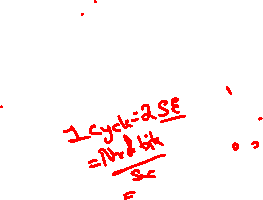 1 cycle = 2 SE
= Nr of bit
sc
=